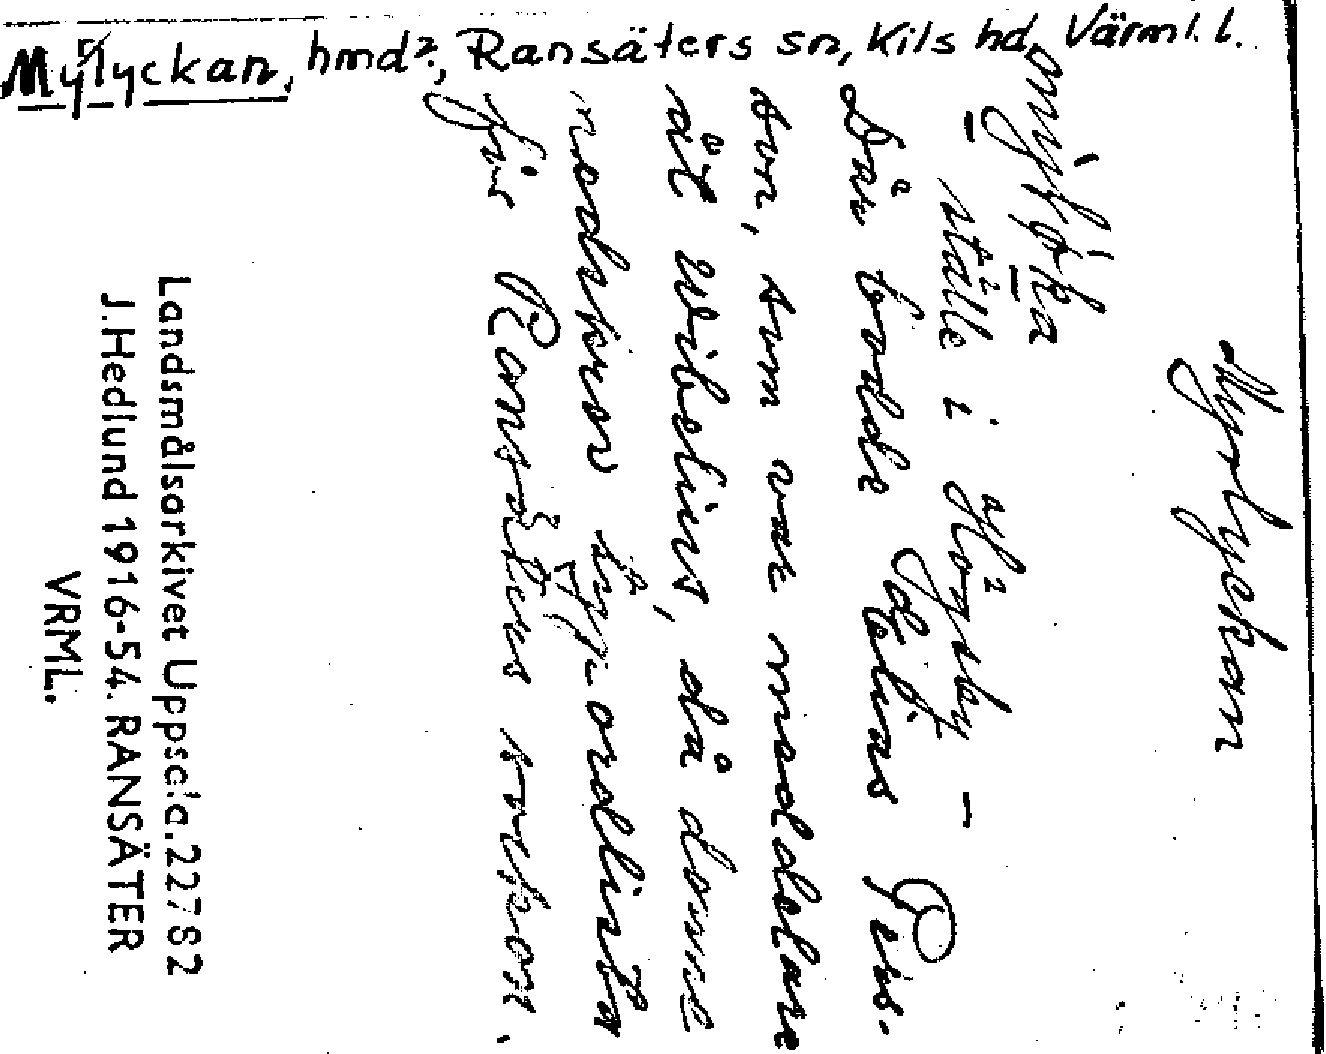 Mylyckan, hmd?, Ransäters sn, Kils hd, Värml. l.
Myrlyckan
ställe i Högsby –
Där bodde Elias Pers-
son, som var meddelare
åt Wibelius, då denne
nedskrev
för Ransäters socken.
Landsmålsarkivet Uppsala. 22782
J. Hedlund 1916-54. RANSÄTER
VRML.